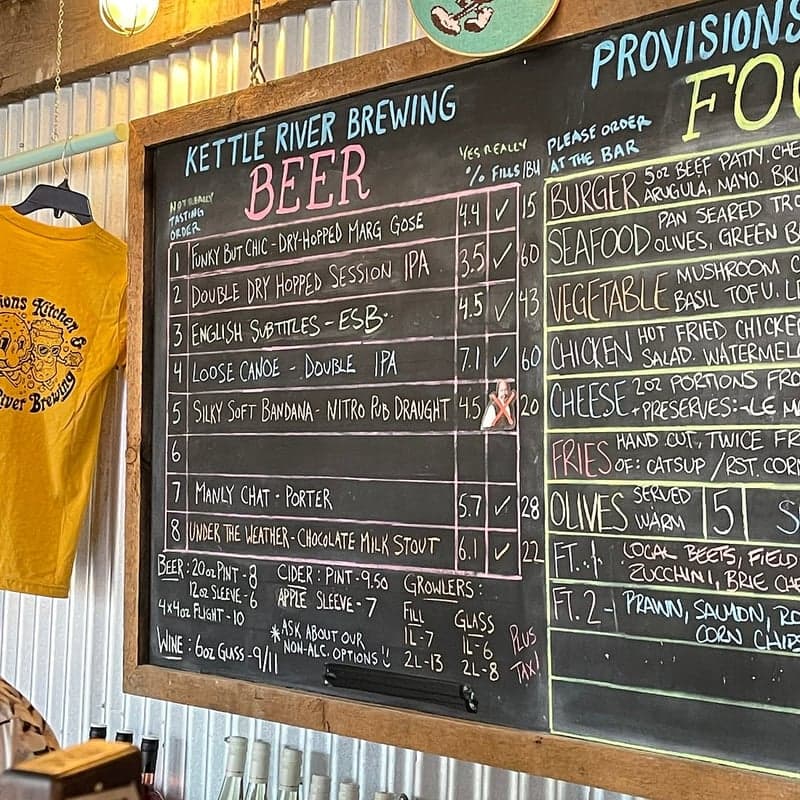 KETTLE RIVER BREWING
BEER
NOT REALLY
TASTING
ORDER
YES REALLY
% FILLS IBU
1 FUNKY BUT CHIC - DRY-HOPPED MARG GOSE 4.4 ✓ 15
2 DOUBLE DRY HOPPED SESSION IPA 3.5 ✓ 60
3 ENGLISH SUBTITLES - ESB 4.5 ✓ 43
4 LOOSE CANOE - DOUBLE IPA 7.1 ✓ 60
5 SILKY SOFT BANDANA - NITRO PUB DRAUGHT 4.5 X 20
6
7 MANLY CHAT - PORTER 5.7 ✓ 28
8 UNDER THE WEATHER - CHOCOLATE MILK STOUT 6.1 ✓ 22
BEER: 20oz PINT - 8
12oz SLEEVE - 6
4x4oz FLIGHT - 10
WINE: 6oz GLASS - 9/11
CIDER: PINT - 9.50
APPLE SLEEVE - 7
*ASK ABOUT OUR
NON-ALC. OPTIONS!
GROWLERS:
FILL GLASS
1L - 7 1L - 6
2L - 13 2L - 8
PLUS
TAX!
PROVISIONS
FOO
PLEASE ORDER
AT THE BAR
BURGER 5oz BEEF PATTY. CHE
ARUGULA, MAYO. BRI
SEAFOOD PAN SEARED TRO
OLIVES, GREEN B
VEGETABLE MUSHROOM C
BASIL TOFU. LE
CHICKEN HOT FRIED CHICKE
SALAD. WATERMEL
CHEESE 2oz PORTIONS FRO
+PRESERVES: -LE M
FRIES HAND CUT, TWICE FR
OF: CATSUP / RST. CORN
OLIVES SERVED
WARM 5 S
FT. 1 LOCAL BEETS, FIELD
ZUCCHINI, BRIE CHE
FT. 2 - PRAWN, SALMON, RO
CORN CHIPS
ions Kitchen &
River Brewing